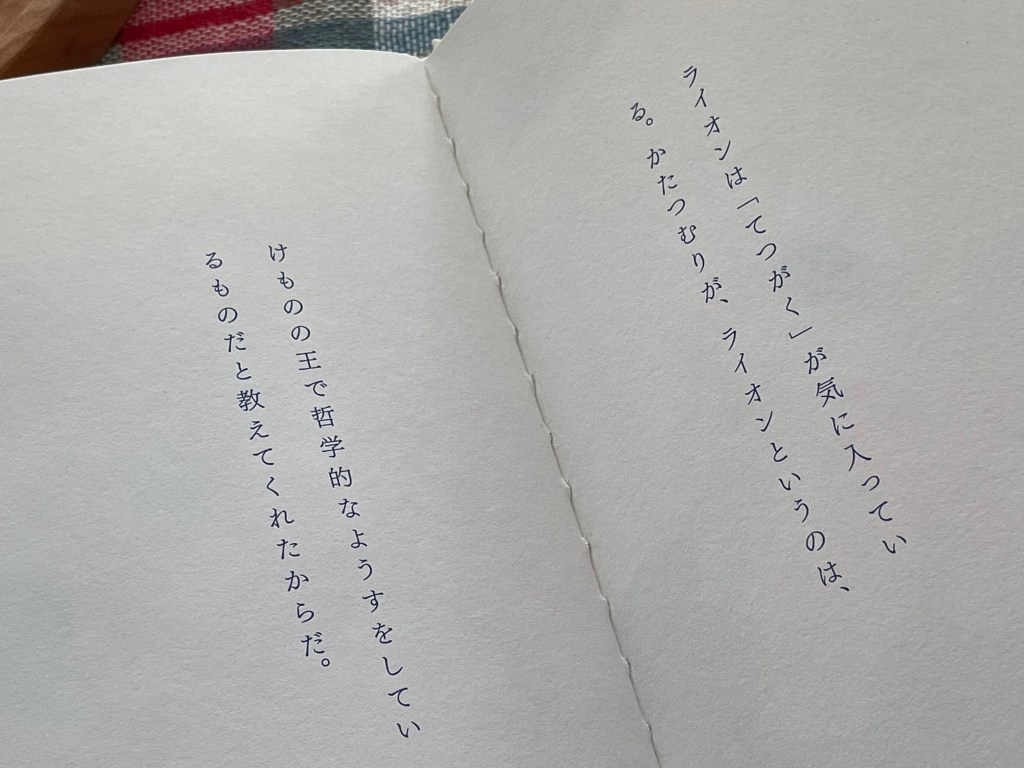 ライオンは「てつがく」が気に入ってい
る。かたつむりが、ライオンというのは、
けものの王で哲学的なようすをしてい
るものだと教えてくれたからだ。